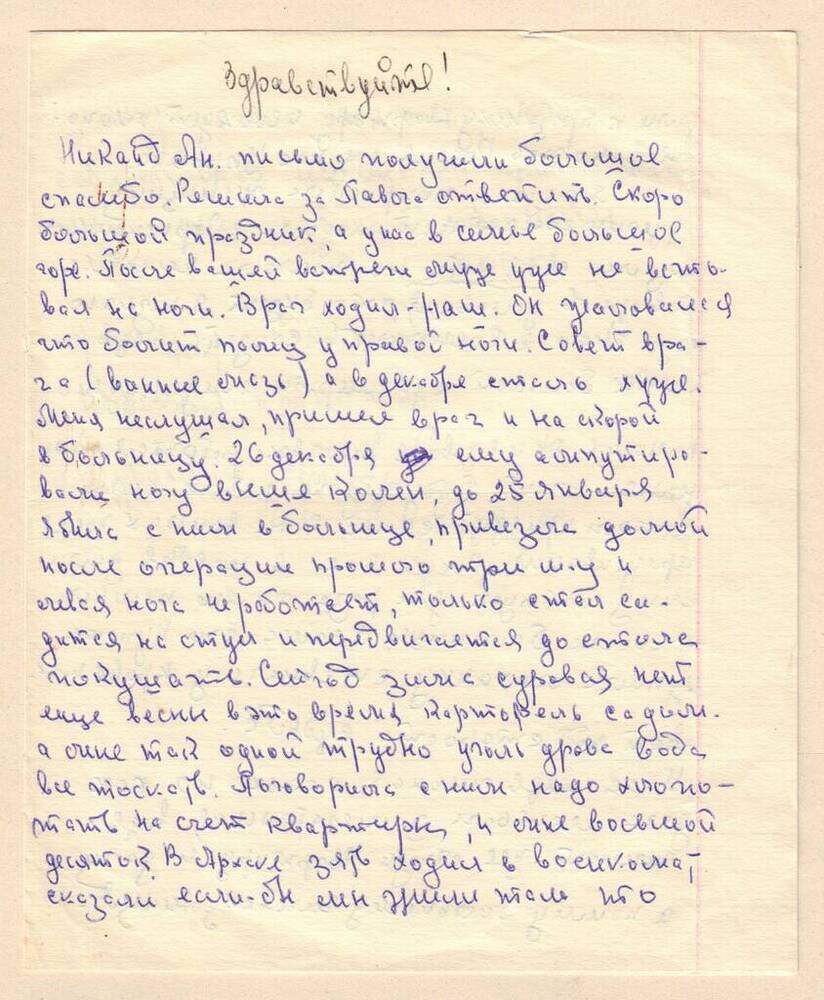 Здравствуйте!
Никанд Ан. письмо получили большое
спасибо. Решила за Павла ответить. Скоро
большой праздник, а у нас в семье большое
горе. После вашей встречи муже уже не вста-
вал на ноги. Врач ходил - наш. Он жаловался
что болит палец у правой ноги. Совет вра-
ча (ванные мазь) а в декабре стало хуже.
Меня неслушал, пришел врач и на скорой
в больницу. 26 декабря ему ампутиро-
вали ногу выше колен, до 25 января
я была с ним в больнице, привезла домой
после операции прошло три м-ц и
левая нога не работает, только стал са-
дится на стул и передвигается до стола
покушать. Сей год зима суровая нет
еще весны в это время картофель садили.
а мне так одной трудно уголь дрова вода
все таскать. Поговорила с ним надо хлопо-
тать на счет квартиры, и мне восьмой
десяток В Арске зять ходил в военкомат
сказали если-бы мы жили там то